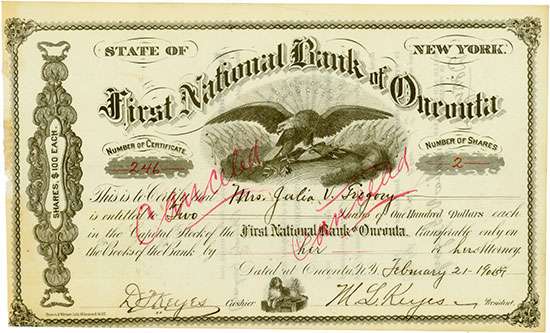 STATE OF NEW YORK.
First National Bank of Oneonta
NUMBER OF CERTIFICATE
246
NUMBER OF SHARES
2
SHARES $100 EACH.
Cancelled
Cancelled
This is to Certify that Mrs. Julia V. Gregory
is entitled to Two Shares of One Hundred Dollars each
in the Capital Stock of the First National Bank of Oneonta. Transferable only on
the Books of the Bank by her or her Attorney.
Dated at Oneonta, N.Y. February 21 1909
D F Keyes Cashier M L Keyes President